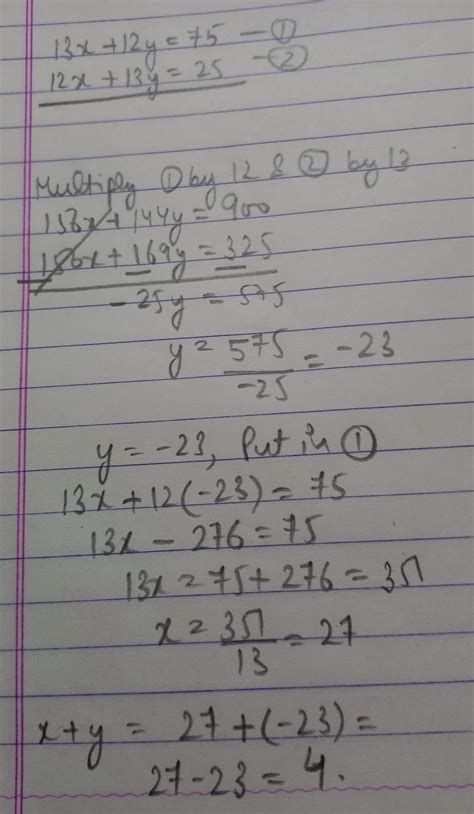 13x+12y=75 —①
12x+13y=25 —②
Multiply ① by 12 & ② by 13
156x+144y=900
156x+169y=325
-25y=575
y=575/-25=-23
y=-23, Put in ①
13x+12(-23)=75
13x-276=75
13x=75+276=351
x=351/13=27
x+y= 27+(-23)=
27-23=4.